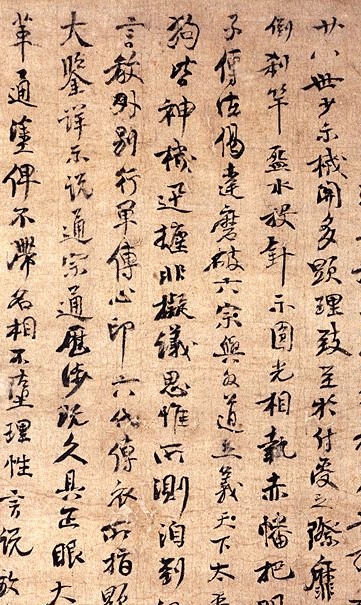 廿八世少示機關多顯理致至於付受之際靡
倒刹竿盌水投針示圓光相執赤幡把明
子傳法偈達磨破六宗與外道立義天下太平
狗皆神機迅捷非擬議思惟所測洎到
言教外別行單傳心印六代傳衣所指顯
大鑒詳示説通宗通歷涉既久具正眼大
革通塗俾不滯名相不墮理性言説放